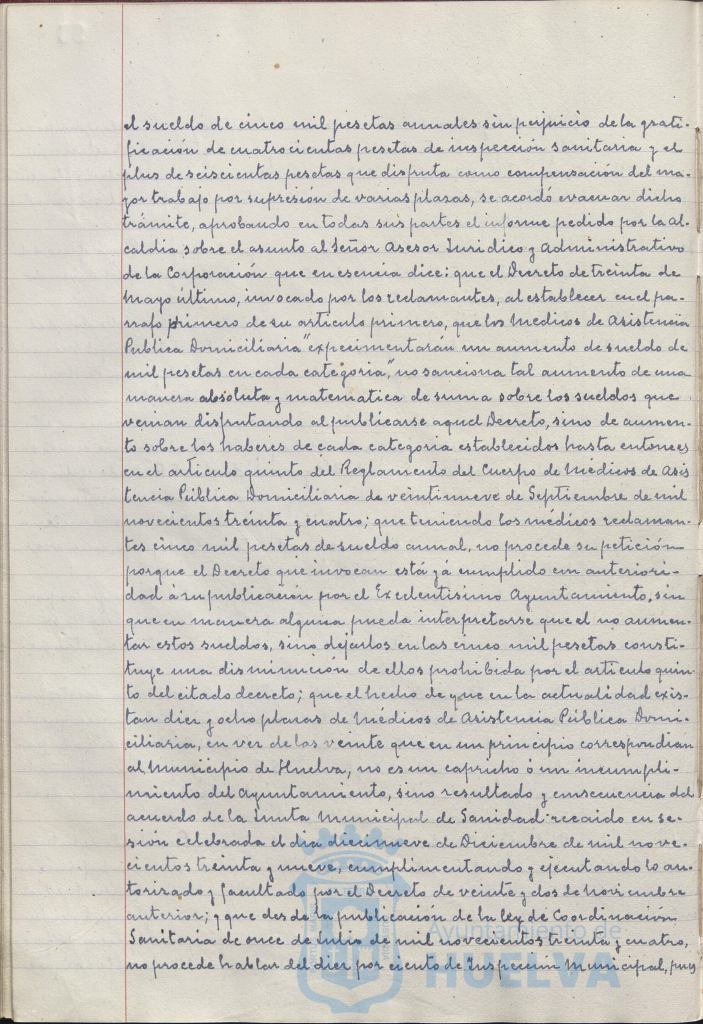 el sueldo de cinco mil pesetas anuales sin perjuicio de la grati-
ficación de cuatrocientas pesetas de inspección sanitaria y el
plus de seiscientas pesetas que disfruta como compensación del ma-
yor trabajo por supresión de varias plazas, se acordó evacuar dicho
trámite, aprobando en todas sus partes el informe pedido por la Al-
caldia sobre el asunto al Señor Asesor Juridico y Administrativo
de la Corporación que en esencia dice: que el Decreto de treinta de
Mayo último, invocado por los reclamantes, al establecer en el pa-
rrafo primero de su articulo primero, que los Medicos de Asistencia
Publica Domiciliaria "experimentarán un aumento de sueldo de
mil pesetas en cada categoria," no sanciona tal aumento de una
manera absoluta y matematica de suma sobre los sueldos que
venian disfrutando al publicarse aquel Decreto, sino de aumen-
to sobre los haberes de cada categoria establecidos hasta entonces
en el articulo quinto del Reglamento del Cuerpo de Médicos de Asis
tencia Pública Domiciliaria de veintinueve de Septiembre de mil
novecientos treinta y cuatro; que teniendo los médicos reclaman-
tes cinco mil pesetas de sueldo anual, no procede su petición
porque el Decreto que invocan está yá cumplido con anteriori-
dad á su publicación por el Excelentisimo Ayuntamiento, sin
que en manera alguna pueda interpretarse que el no aumen-
tar estos sueldos, sino dejarlos en las cinco mil pesetas consti-
tuye una disminución de ellos prohibida por el articulo quin-
to del citado decreto; que el hecho de que en la actualidad exis-
tan diez y ocho plazas de Médicos de Asistencia Pública Domi-
ciliaria, en vez de las veinte que en un principio correspondian
al Municipio de Huelva, no es un capricho ó un incumpli-
miento del Ayuntamiento, sino resultado y consecuencia del
acuerdo de la Junta Municipal de Sanidad recaido en se-
sión celebrada el dia diecinueve de Diciembre de mil nove-
cientos treinta y nueve, cumplimentando y ejecutando lo au-
torizado y facultado por el Decreto de veinte y dos de noviembre
anterior; y que desde la publicación de la ley de Coordinación
Sanitaria de once de Julio de mil novecientos treinta y cuatro,
no procede hablar del diez por ciento de Inspección Municipal, pues
Ayuntamiento de
HUELVA